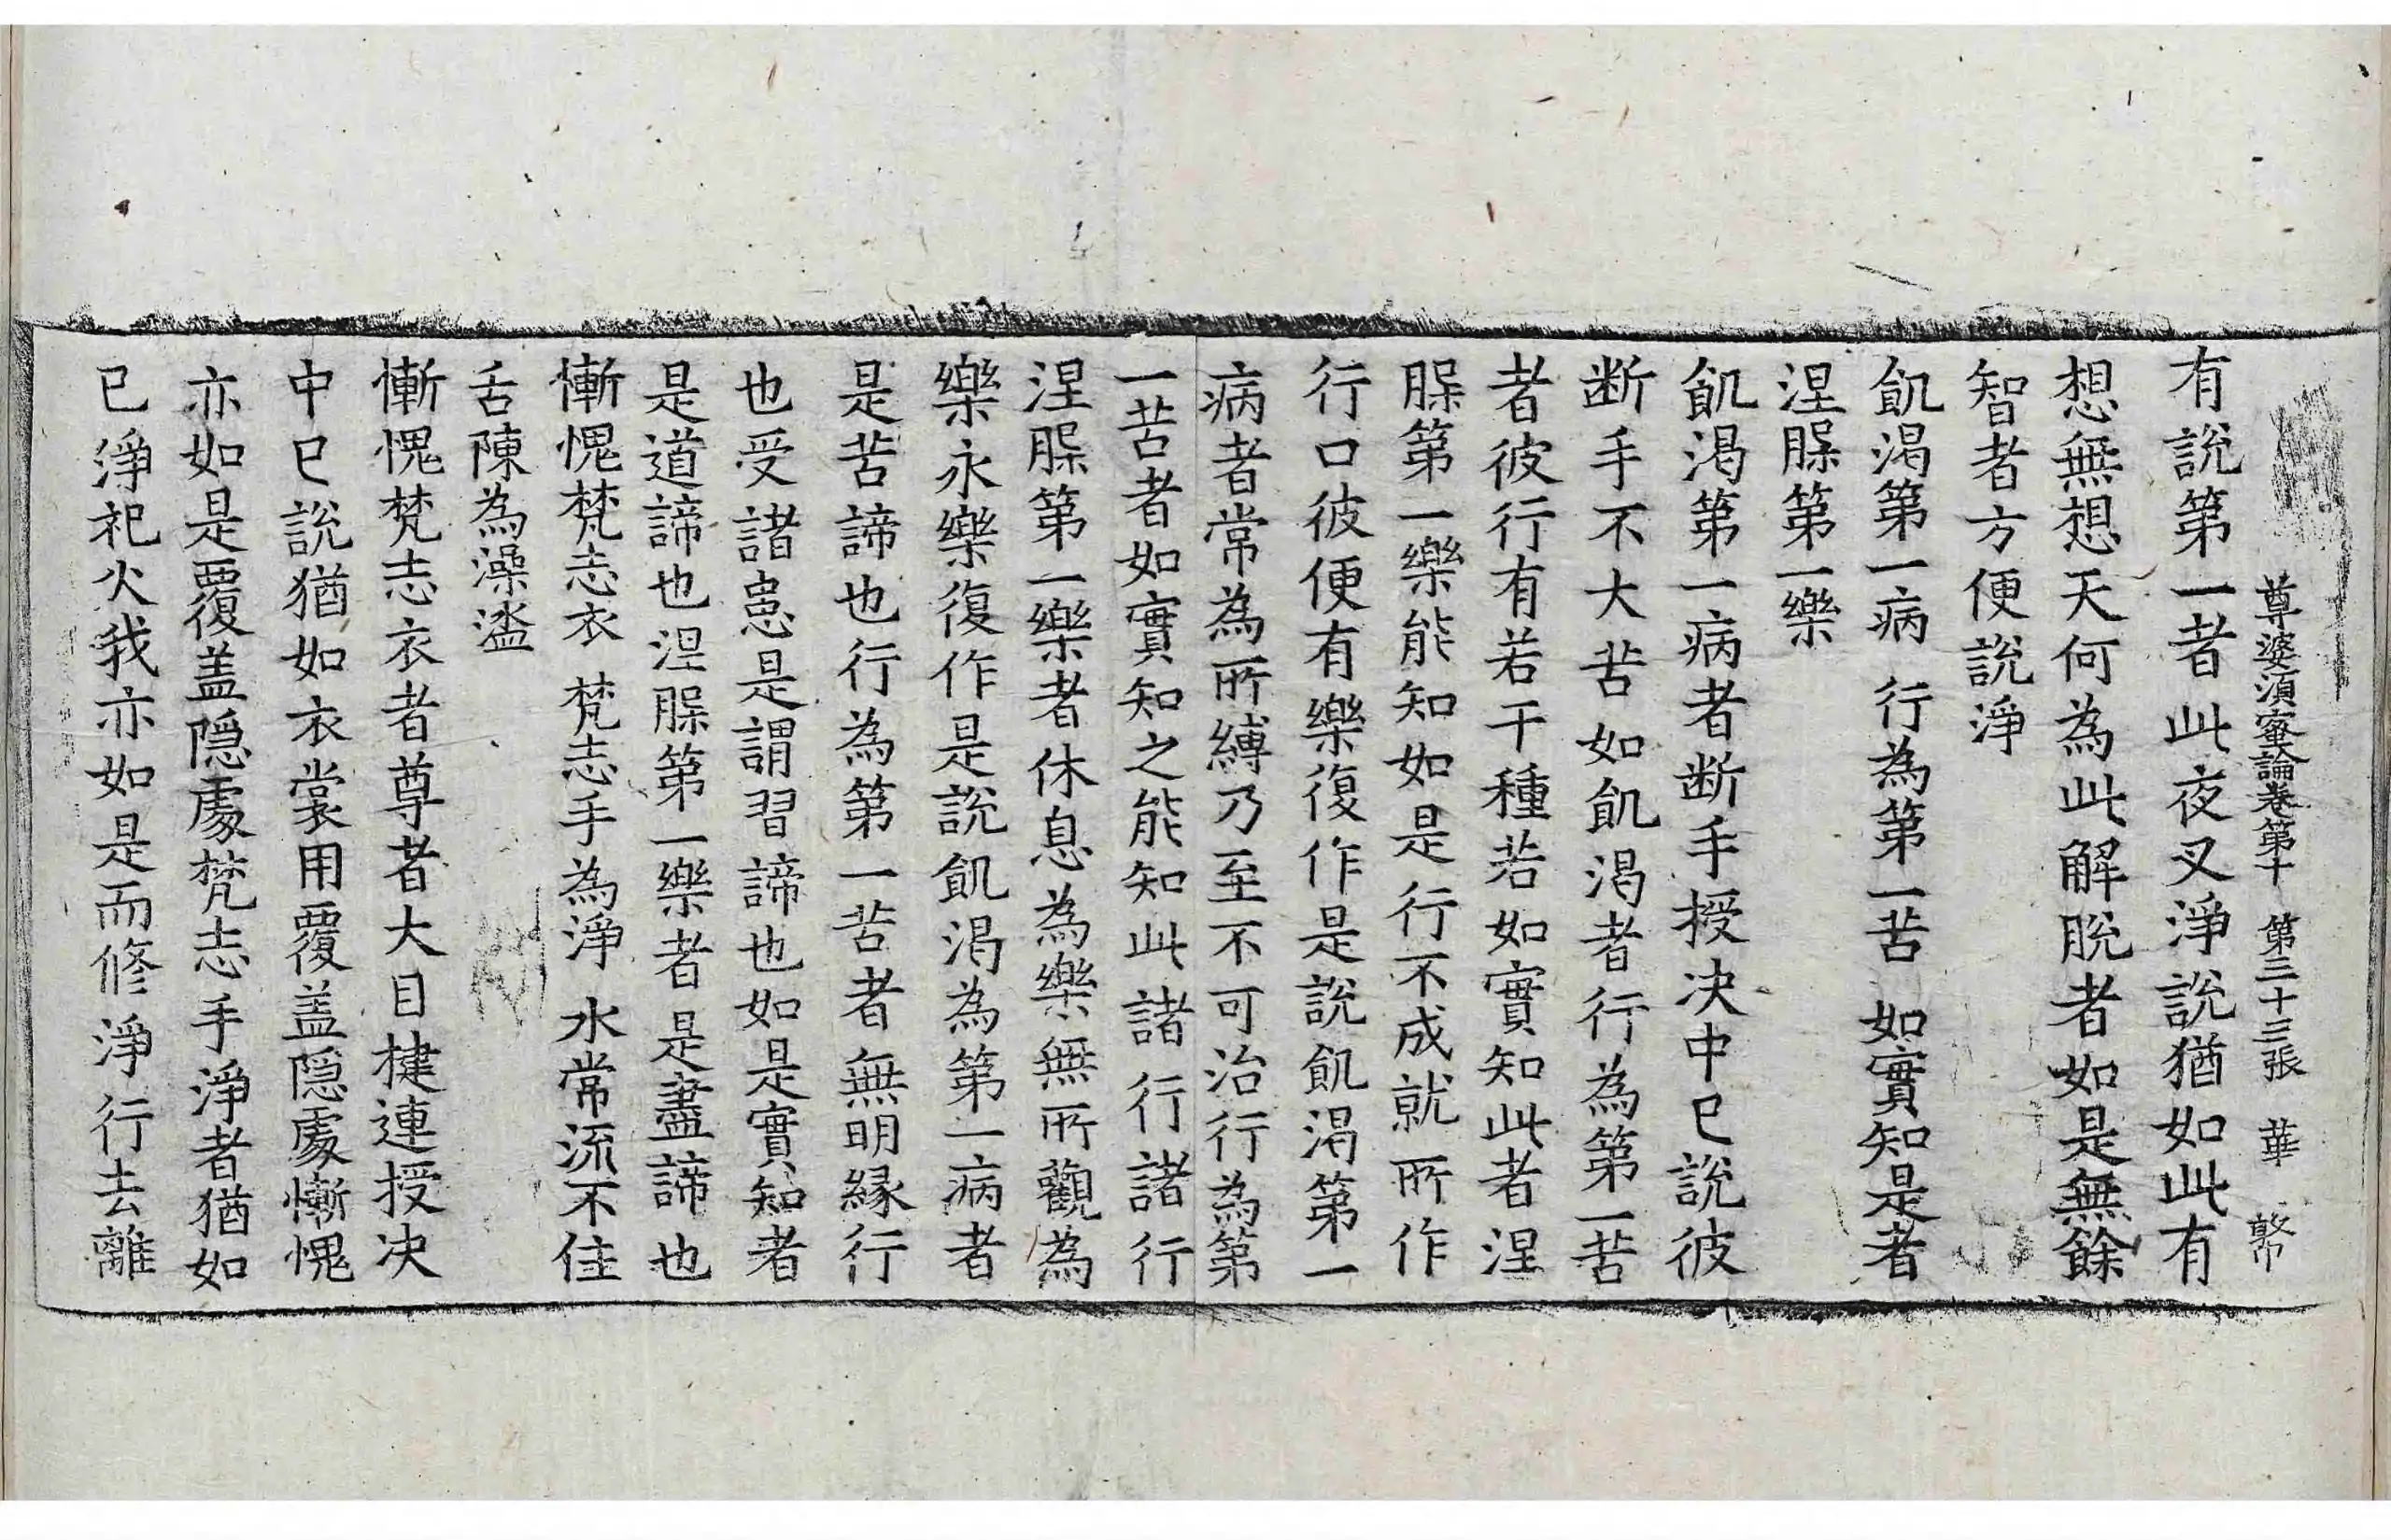 尊婆湏蜜論卷第十　第三十三張　華　幣
有說第一者此夜叉淨說猶如此有
想無想天何為此解脫者如是無餘
智者方便說淨
飢渴第一病　行為第一苦　如實知是者
涅䐧第一樂
飢渴第一病者断手授决中已說彼
断手不大苦如飢渴者行為第一苦
者彼行有若干種若如實知此者涅
䐧第一樂能知如是行不成就所作
行口彼便有樂復作是說飢渴第一
病者常為所縛乃至不可治行為第
一苦者如實知之能知此諸行諸行
涅䐧第一樂者休息為樂無所觀為
樂永樂復作是說飢渴為第一病者
是苦諦也行為第一苦者無明縁行
也受諸㤙是謂習諦也如是實知者
是道諦也涅䐧第一樂者是盡諦也
慚愧梵志衣　梵志手為淨　水常流不住
舌陳為澡㿉
慚愧梵志衣者尊者大目揵連授决
中已說猶如衣裳用覆盖隠處慚愧
亦如是覆盖隠處梵志手淨者猶如
已淨祀火我亦如是而修淨行去離